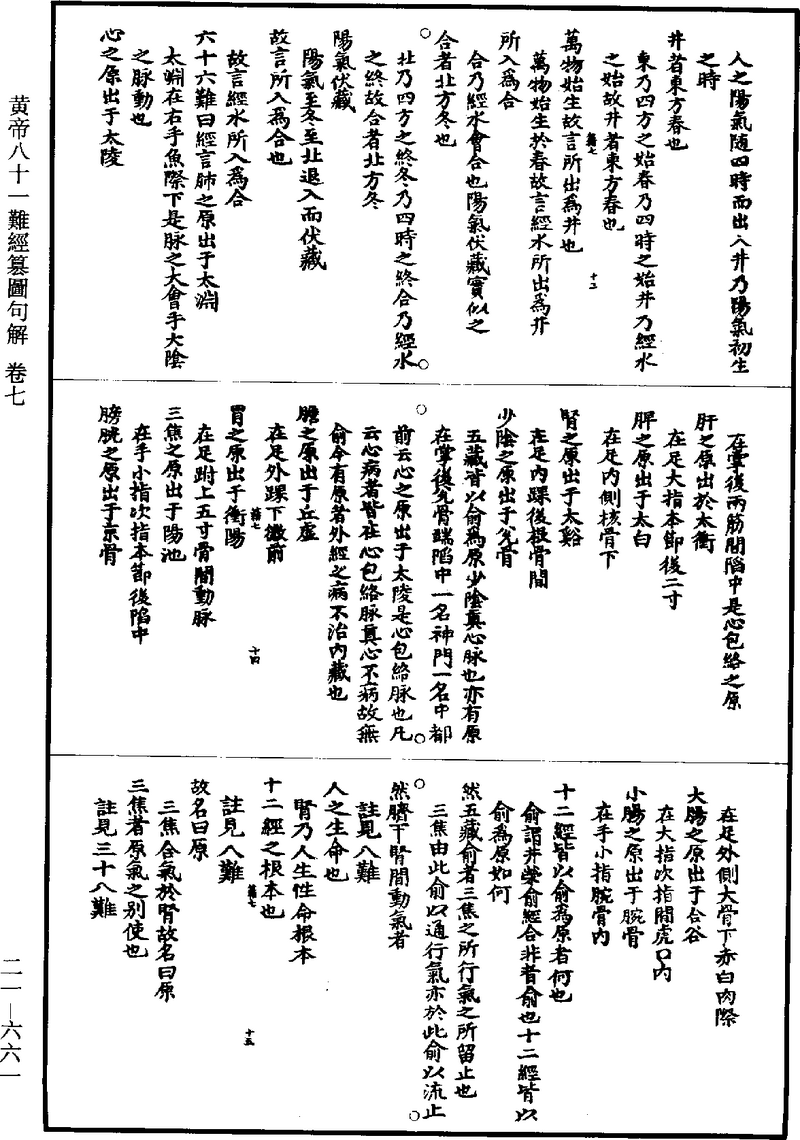 黃帝八十一難經纂圖句解　卷七
人之陽氣隨四時而出入井乃陽氣初生
之時
井者東方春也
東乃四方之始春乃四時之始井乃經水
之始故井者東方春也
萬物始生故言所出為井也
難七
十三
萬物始生於春故言經水所出為井
所入為合
合乃經水會合也陽氣伏藏實似之
合者北方冬也
北乃四方之終冬乃四時之終合乃經水
之終故合者北方冬
陽氣伏藏
陽氣至冬至北退入而伏藏
故言所入為合也
故言經水所入為合
六十六難曰經言肺之原出于太淵
太淵在右手魚際下是脉之大會手大陰
之脉動也
心之原出于太陵
在掌後兩筋間陷中是心包絡之原
肝之原出於太衝
在足大指本節後二寸
脾之原出于太白
在足內側核骨下
腎之原出于太谿
在足內踝後跟骨間
少陰之原出于兌骨
五藏皆以俞為原少陰真心脉也亦有原
在掌後兌骨端陷中一名神門一名中都
前云心之原出于太陵是心包絡脉也凡
云心病者皆在心包絡脉真心不病故無
俞今有原者外經之病不治內藏也
膽之原出于丘虛
在足外踝下微前
難七
十四
胃之原出于衝陽
在足跗上五寸骨間動脉
三焦之原出于陽池
在手小指次指本節後陷中
膀胱之原出于京骨
在足外側大骨下赤白肉際
大腸之原出于合谷
在大指次指間虎口內
小腸之原出于腕骨
在手小指腕骨內
十二經皆以俞為原者何也
俞謂井滎俞經合非者俞也十二經皆以
俞為原如何
然五藏俞者三焦之所行氣之所留止也
三焦由此俞以通行氣亦於此俞以流止
然臍下腎間動氣者
註見八難
人之生命也
腎乃人生性命根本
十二經之根本也
難七
十五
註見八難
故名曰原
三焦合氣於腎故名曰原
三焦者原氣之別使也
註見三十八難
二一—六六一